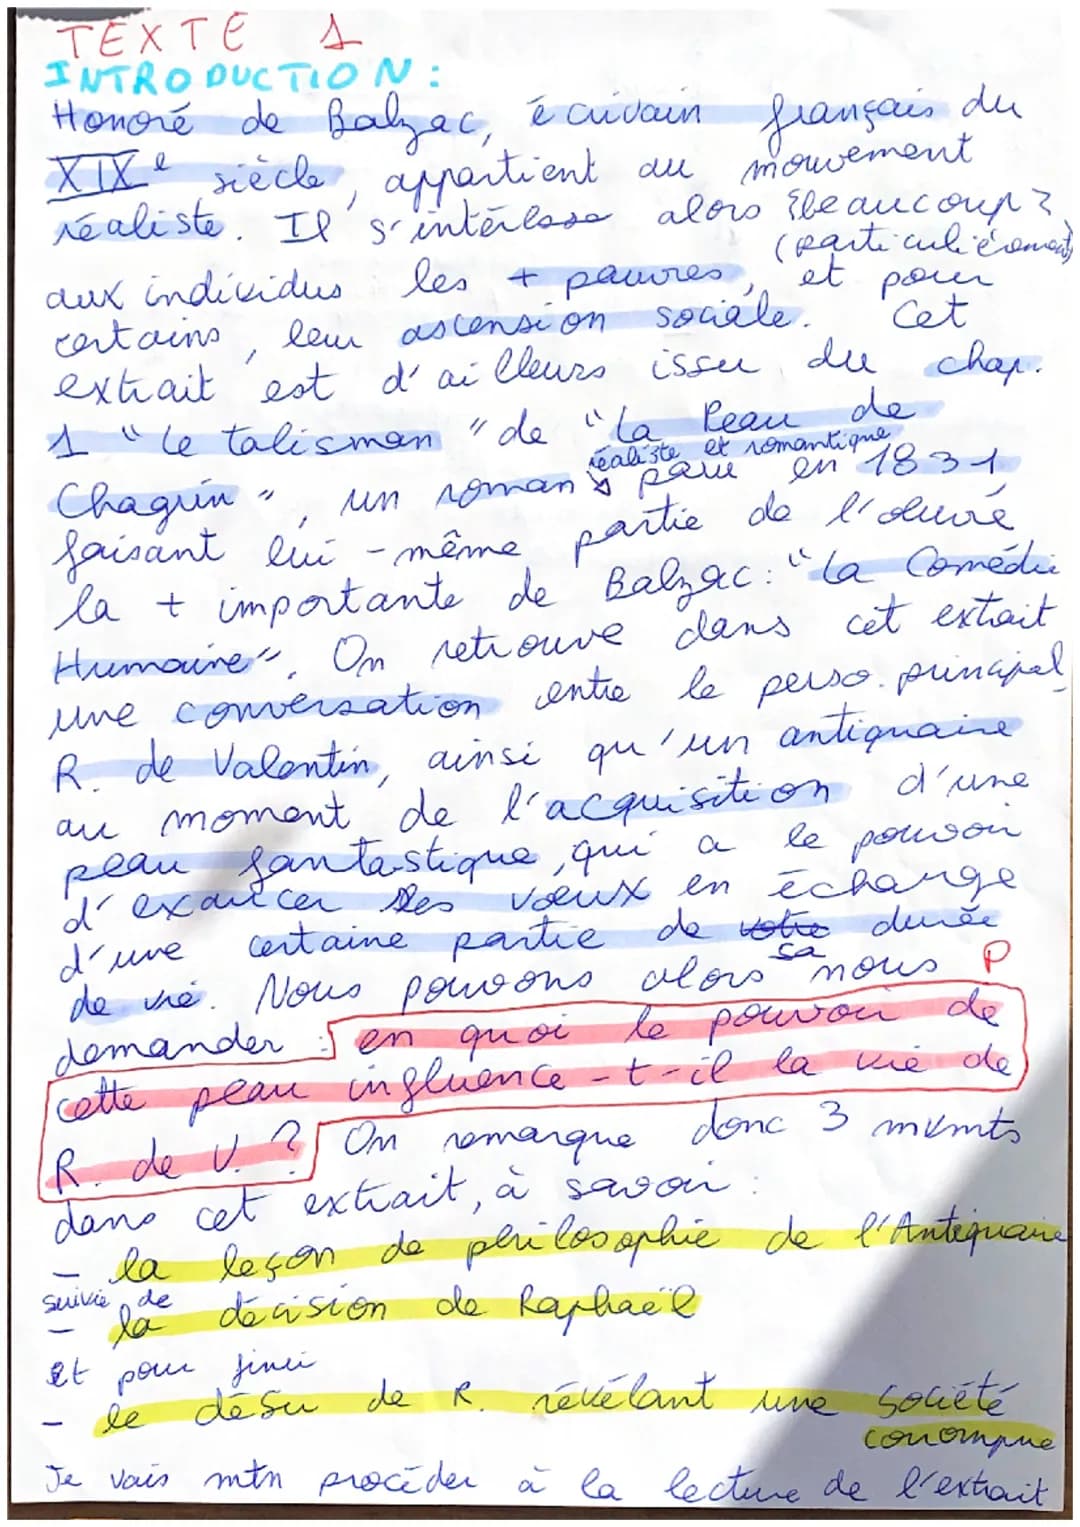 TEXTE 1
INTRODUCTION :
Honoré de Balzac, écrivain français du
XIXe siècle, appartient au mouvement
réaliste. Il s'intéresse alors {beaucoup}
(particulièrement)
aux individus les + pauvres, et pour
certains, leur ascension sociale. Cet
extrait est d'ailleurs issu du chap.
1 "Le talisman" de "La Peau de
réaliste et romantique
Chagrin", un roman paru en 1831,
faisant lui-même partie de l'œuvre
la + importante de Balzac : "La Comédie
Humaine". On retrouve dans cet extrait
une conversation entre le perso. principal,
R. de Valentin, ainsi qu'un antiquaire
au moment de l'acquisition d'une
peau fantastique, qui a le pouvoir
d'exaucer des vœux en échange
d'une certaine partie de votre durée
sa
de vie. Nous pouvons alors nous P
demander : en quoi le pouvoir de
cette peau influence-t-il la vie de
R. de V. ? On remarque donc 3 mvmts
dans cet extrait, à savoir :
- la leçon de philosophie de l'Antiquaire
suivie de
- la décision de Raphaël
et pour finir
- le désir de R. révélant une société
corrompue
Je vais mtn procéder à la lecture de l'extrait